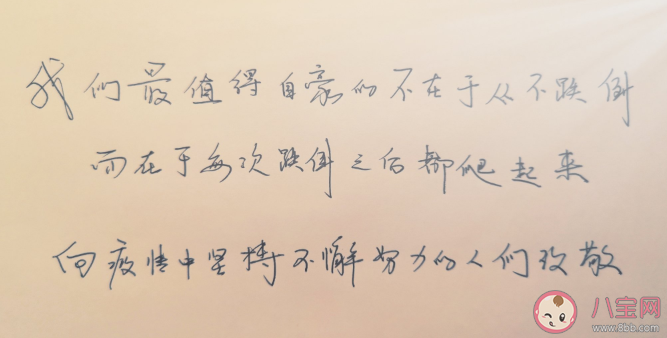 我们最值得自豪的不在于从不跌倒
而在于每次跌倒之后都爬起来
向疫情中坚持不懈努力的人们致敬
八宝网
www.8bb.com